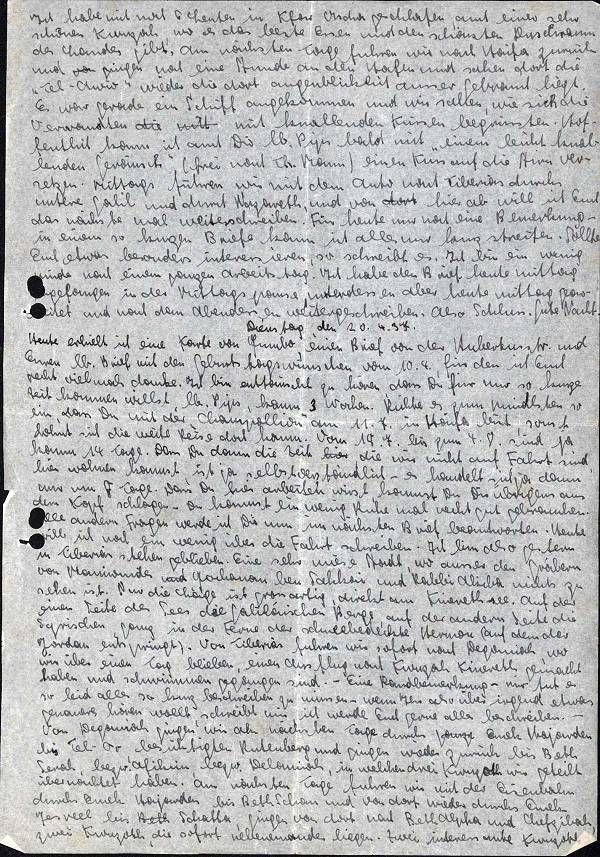 Ich habe mit noch 6 Leuten in Kfar Uscha geschlafen auf einer sehr
schönen Kwuzah wo es das beste Essen und den schönsten Duschraum
des Landes gibt. Am nächsten Tage fuhren wir nach Haifa zurück
und gingen noch eine Stunde an den Hafen und sahen dort die
"Tel-Awiw" wieder die dort augenblicklich ausser liegt.
Es war gerade ein Schiff angekommen und wir sahen, wie sich die
Verwandten die mit mit knallenden Küssen begrüssten. Hof-
fentlich kann ich auch Dir lb. Pips bald mit "einem leicht knal-
lenden Geräusch" (frei nach Th. Mann) einen Kuss auf die Stirn ver-
setzen. Mittags fuhren wir mit dem Auto nach Tiberias durchs
untere Galil und durch Nazareth und von dort hier ab will ich Euch
das nächste mal weiterschreiben. Für heute nur noch eine Bemerkung -
in einem so kurzen Briefe kann ich alles nur kurz streifen. Sollte
Euch etwas besonders interessieren, so schreibt es. Ich bin ein wenig
müde nach einem ganzen Arbeitstag. Ich habe den Brief heute mittag
angefangen in der Mittagspause unterdessen aber heute mittag gear-
beitet und nach dem Abendessen weitergeschrieben. Also Schluss. Gute Nacht.
Dienstag den 20.4.37.
Heute erhielt ich eine Karte von einen Brief von der und
Euren lb. Brief mit den Geburtstagswünschen vom 10.4. für den ich Euch
recht vielmals danke. Ich bin enttäuscht zu hören dass Du hier nur so kurze
Zeit kommen willst lb. Pips, kaum 3 Wochen. Richte es zum mindesten so
ein dass Du mit der Champollion am 11.7. in Haifa bist, sonst
lohnt sich die weite Reise doch kaum. Vom 14.7. bis zum 4.8. sind ja
kaum 14 Tage. Dass Du dann die Zeit die wir nicht auf Fahrt sind,
hier wohnen kannst, ist ja selbstverständlich - es handelt sich ja dann
nur um 8 Tage. Dass Du hier arbeiten wirst kannst Du Dir übrigens aus
dem Kopf schlagen - Du kannst ein wenig Ruhe mal recht gut gebrauchen.
Alle andern Fragen werde ich Dir nun im nächsten Brief beantworten. Heute
will ich noch ein wenig über die Fahrt schreiben. Ich bin also gestern
in Tiberias stehen geblieben. Eine sehr miese Stadt, wo ausser den Gräbern
von Maimonides und Jochanan ben Sakkai und Rabbi Akiba nichts zu
sehen ist. Nur die Lage ist grossartig, direkt am Kinerethsee. Auf der
einen Seite des Sees die Galiläischen Berge, auf der andern Seite die
Syrischen ganz in der Ferne der schneebedeckte Hermon (auf dem der
Jordan entspringt). Von Tiberias fuhren wir sofort nach Deganiah wo
wir über einen Tag blieben, einen Ausflug nach Kwuzah Kinereth gemacht
haben und schwimmen gegangen sind. - Eine Randbemerkung - mir tut es
so leid alles so kurz beschreiben zu müssen - wenn Ihr also über irgend etwas
genaueres hören wollt schreibt mir, ich werde Euch gerne alles beschreiben. -
Von Deganiah gingen wir am nächsten Tage durchs ganze Emek Hajarden
bis Tel-Or besichtigten Rutenberg und gingen wieder zurück bis Beth
Serah bezw. Afikim bezw. Delamiah, in welchen drei Kwuzoth wir geteilt
übernachtet haben. Am nächsten Tage fuhren wir mit der Eisenbahn
durchs Emek Hajarden bis Beth Schean und von dort wieder durchs Emek
Jesreel bis Beth Schatta gingen von dort nach Beth Alpha und Chefzibah,
zwei Kwuzoth, die sofort nebeneinander liegen. Zwei interessante Kwuzoth,